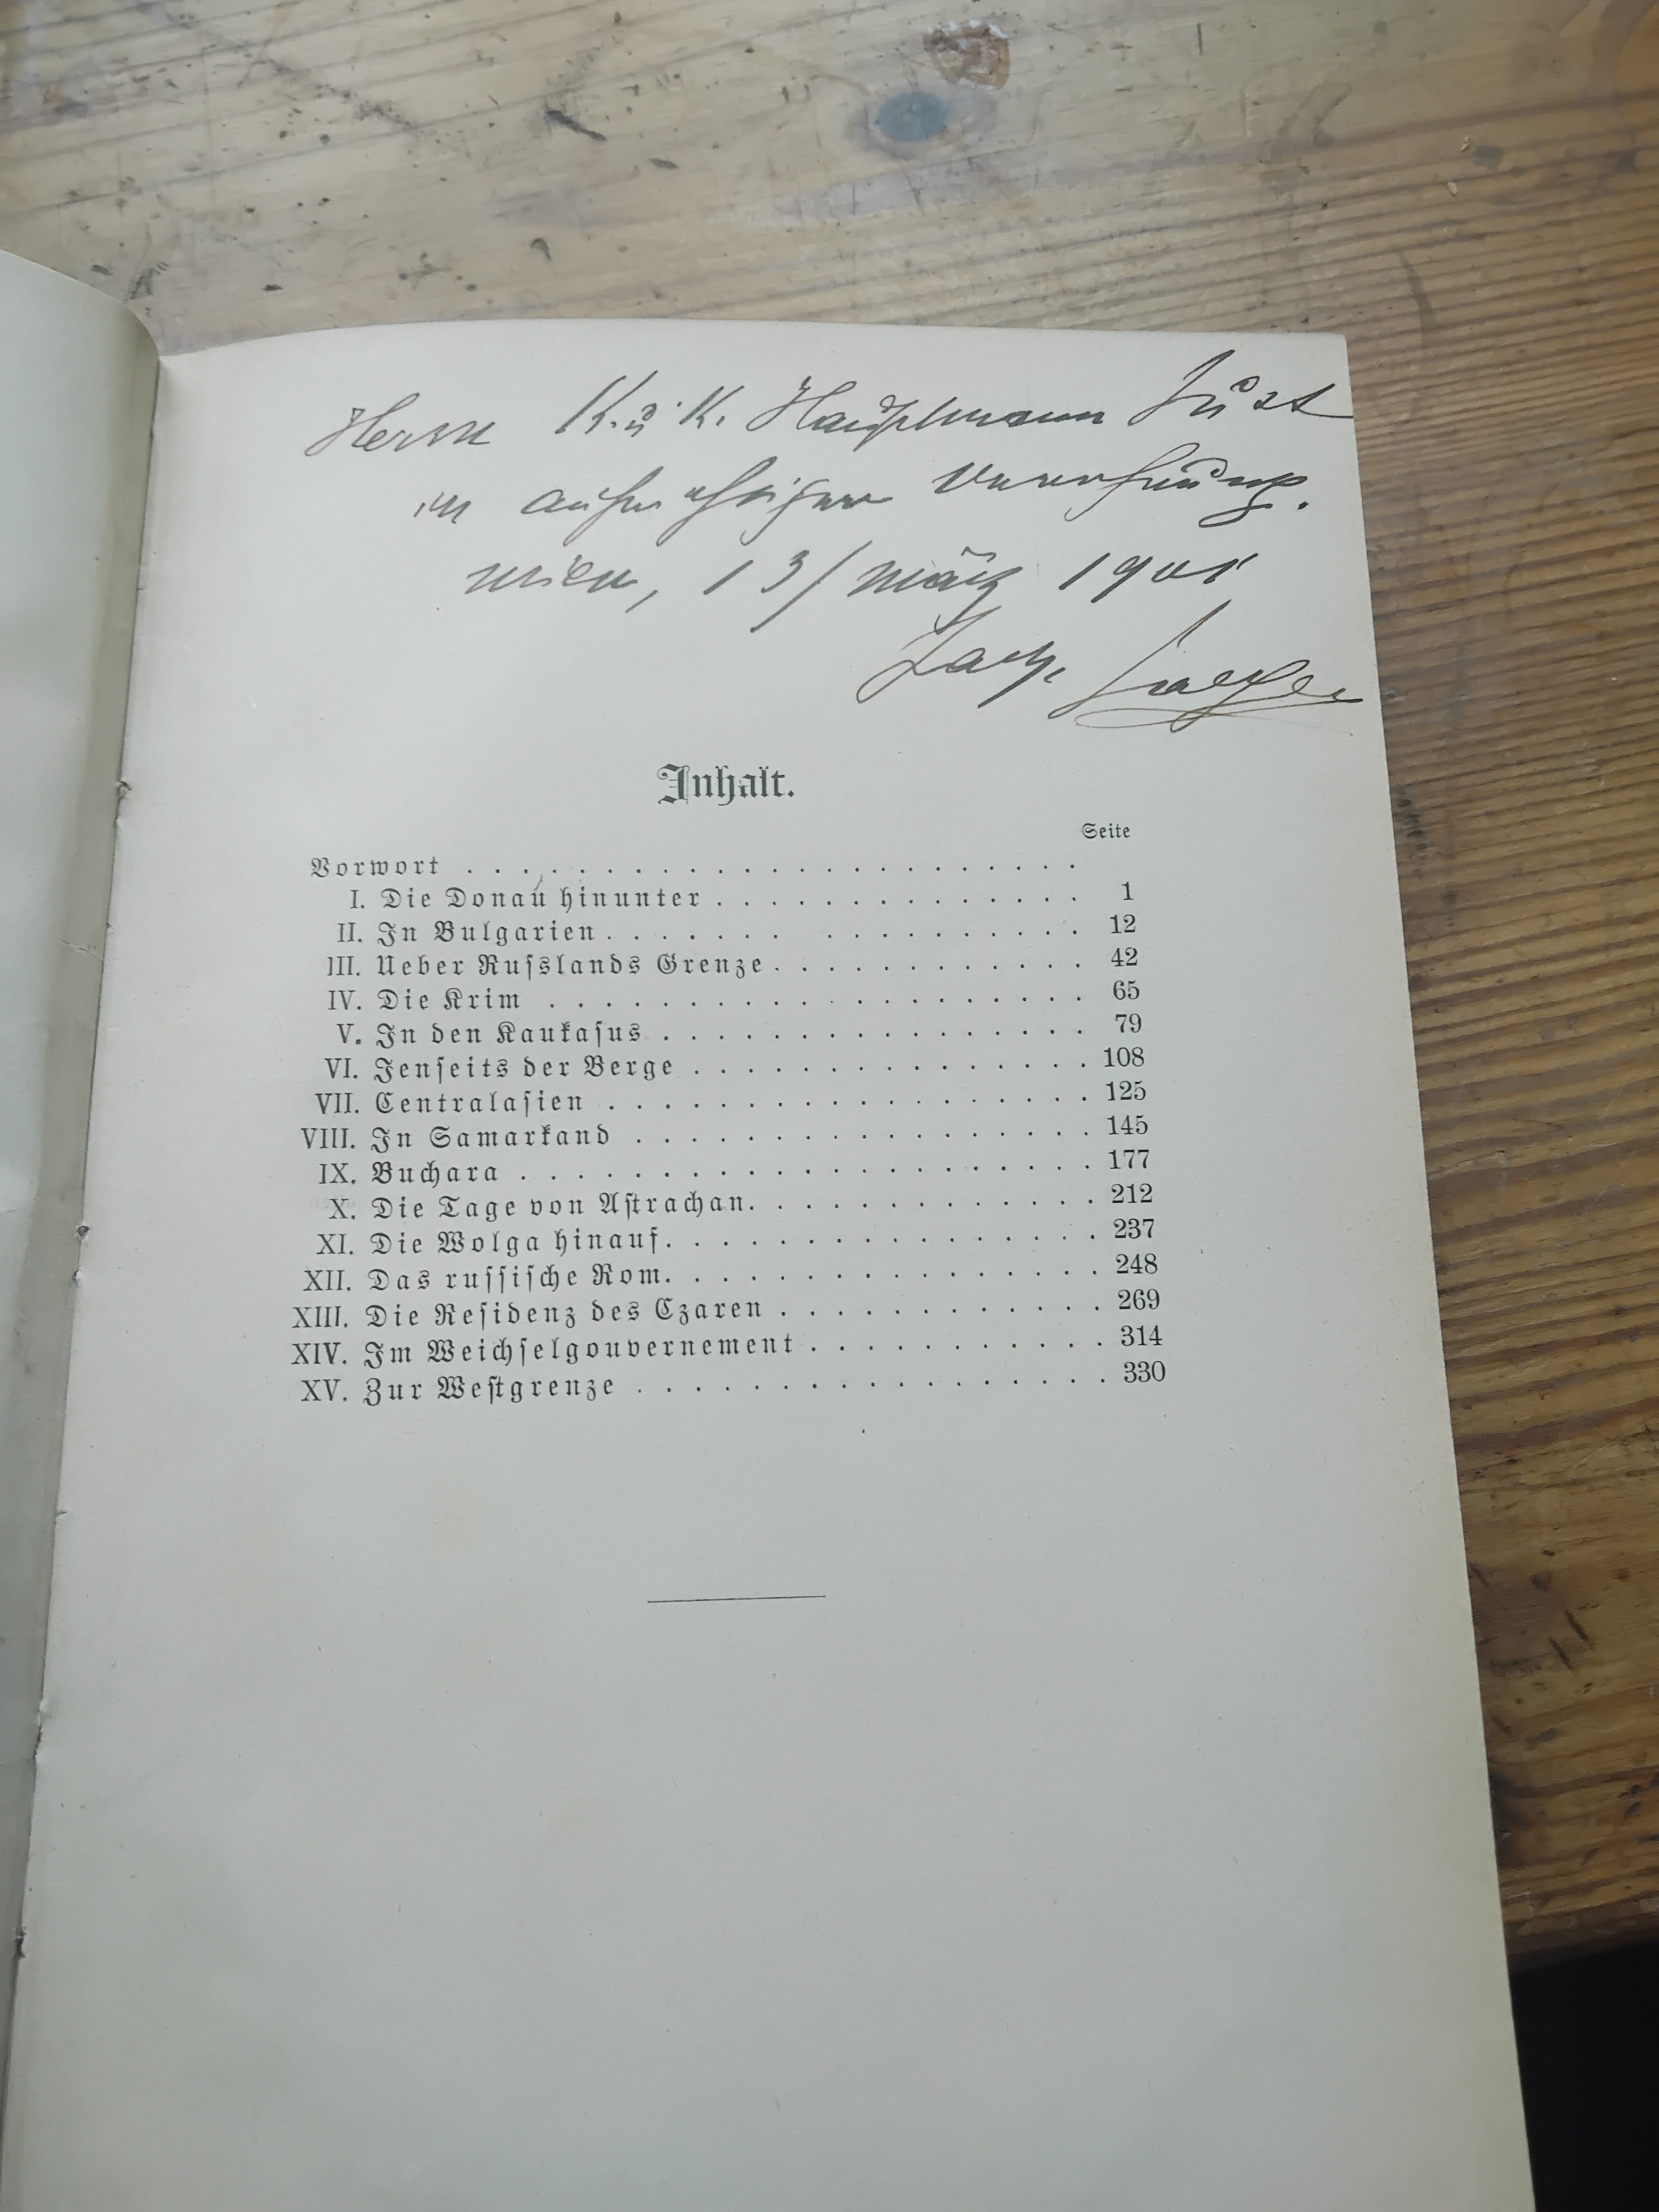 Herrn K. u. K. Hauptmann Just
in aufrichtiger Verehrung.
Wien, 13/ März 1901
Inhalt.
Seite
Vorwort . . . . . . . . . . . . . . . . . . . . . .
I. Die Donau hinunter . . . . . . . . . . . . . . 1
II. In Bulgarien . . . . . . . . . . . . . . . . . 12
III. Ueber Ruſslands Grenze . . . . . . . . . . . . 42
IV. Die Krim . . . . . . . . . . . . . . . . . . . 65
V. In den Kaukaſus . . . . . . . . . . . . . . . . 79
VI. Jenſeits der Berge . . . . . . . . . . . . . . . 108
VII. Centralaſien . . . . . . . . . . . . . . . . . . 125
VIII. In Samarkand . . . . . . . . . . . . . . . . . 145
IX. Buchara . . . . . . . . . . . . . . . . . . . . . 177
X. Die Tage von Aſtrachan . . . . . . . . . . . . . 212
XI. Die Wolga hinauf . . . . . . . . . . . . . . . . 237
XII. Das ruſſiſche Rom . . . . . . . . . . . . . . . . 248
XIII. Die Reſidenz des Czaren . . . . . . . . . . . . 269
XIV. Im Weichſelgouvernement . . . . . . . . . . . 314
XV. Zur Weſtgrenze . . . . . . . . . . . . . . . . . 330